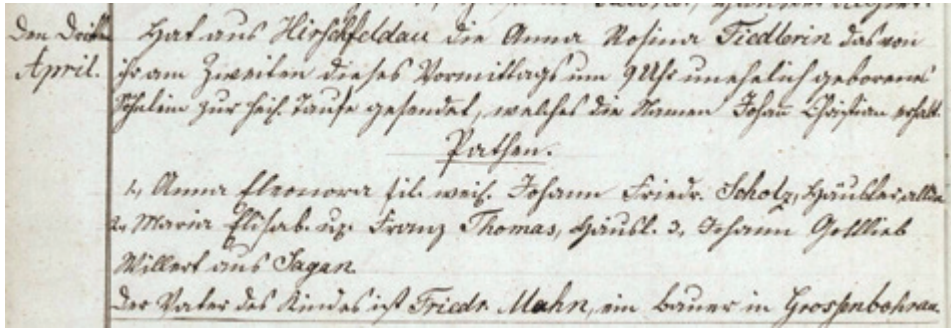 Den Dritten Hat aus Hirschfeldau die Anna Rosina Fiedlerin das von
April. ihr am Zweiten dieses Vormittags um 9 Uhr unehelich geborenes
Söhnlein zur heil. Taufe gesendet, welches die Namen Johann Christian erhalt.
Pathen.
1, Anna Eleonora fil. weil. Johann Friedr. Scholz, Häusler, allhier
2, Maria Elisab. ux. Franz Thomas, Häusl. 3, Johann Gottlieb
Willert aus Sagan.
Der Vater des Kindes ist Friedr. Mahn, ein Bauer in Grossenbohrau.